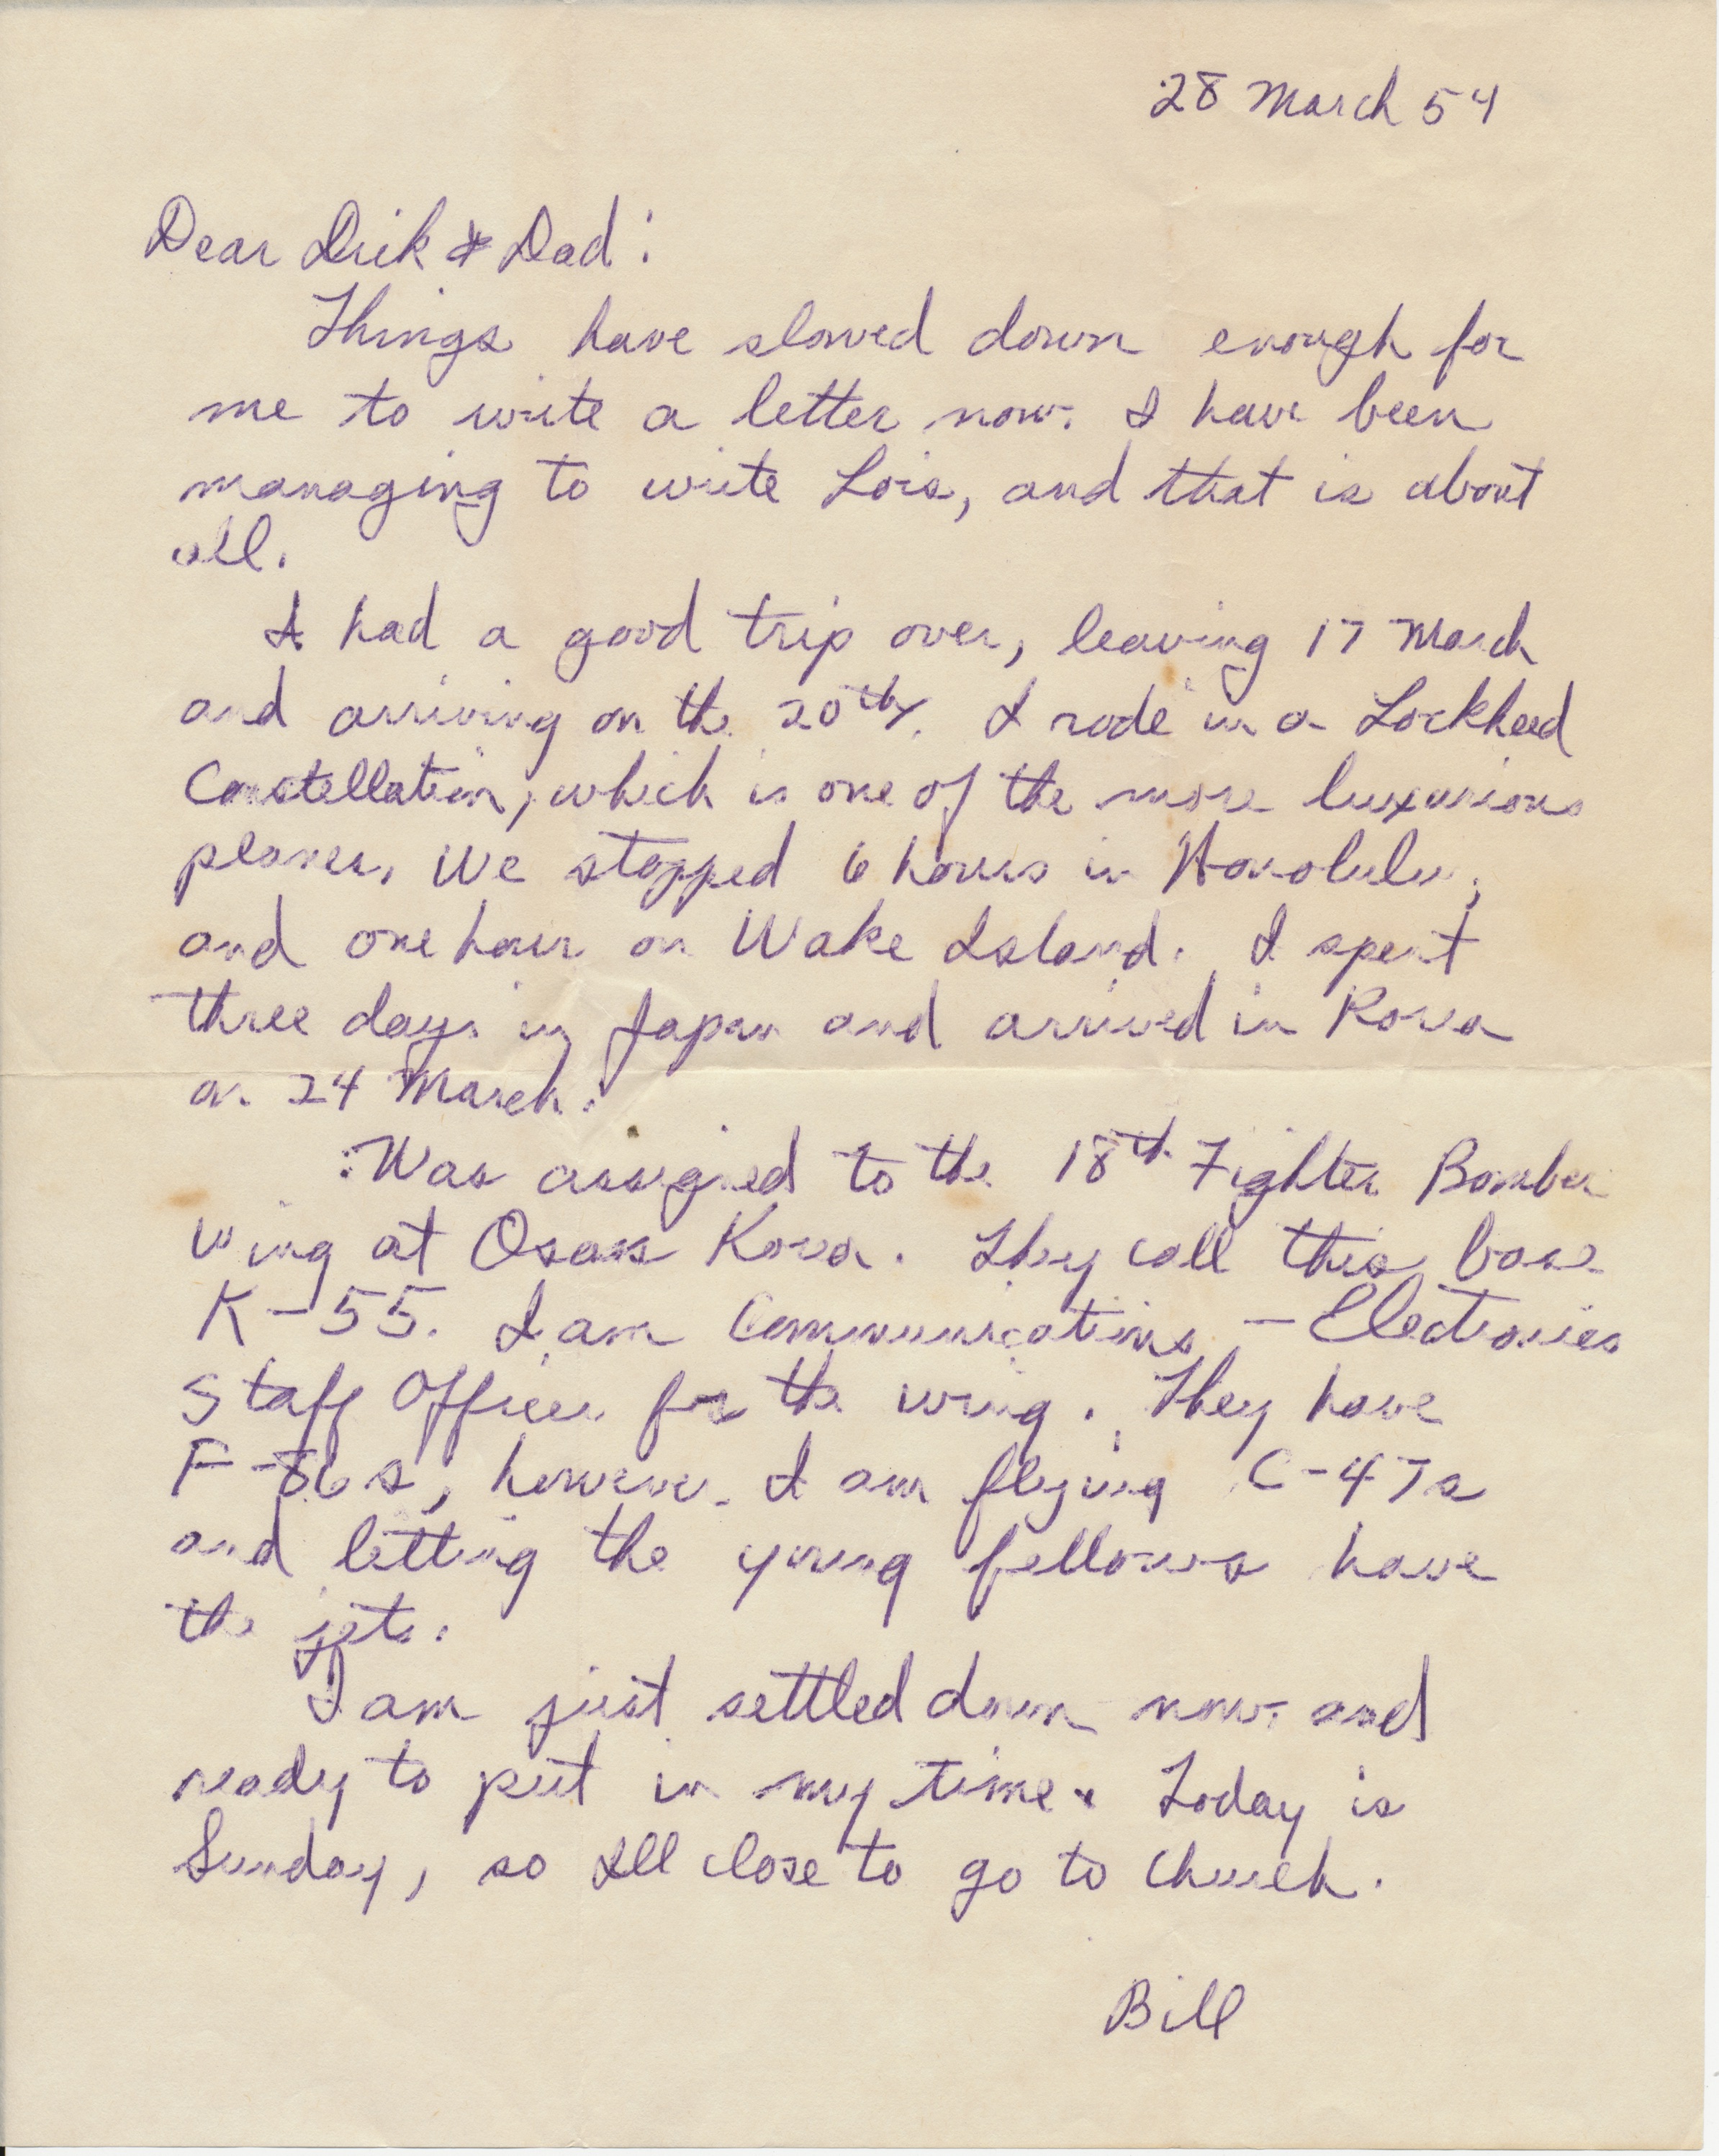 28 March 54
Dear Dick & Dad:
Things have slowed down enough for
me to write a letter now. I have been
managing to write Lois, and that is about
all.
I had a good trip over, leaving 17 March
and arriving on the 20th. I rode in a Lockheed
Constellation, which is one of the more luxurious
planes. We stopped 6 hours in Honolulu,
and one hour on Wake Island. I spent
three days in Japan and arrived in Korea
on 24 March.
Was assigned to the 18th Fighter Bomber
Wing at Osan Korea. They call this base
K-55. I am Communications - Electronics
Staff Officer for the wing. They have
F-86s, however I am flying C-47s
and letting the young fellows have
the jets.
I am just settled down now and
ready to put in my time. Today is
Sunday, so I'll close to go to church.
Bill